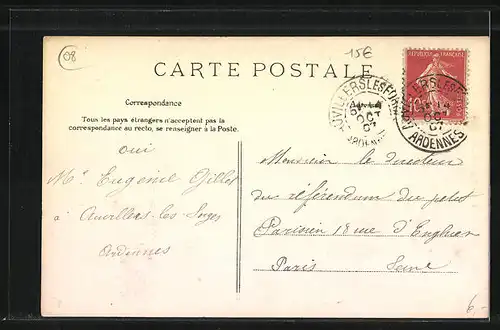 08
15€
RÉPUBLIQUE FRANÇAISE
10
CARTE POSTALE
AUVILLERS LES FORGES
14
OCT
07
ARDENNES
Correspondance
Tous les pays étrangers n'acceptent pas la
correspondance au recto, se renseigner à la Poste.
oui
Mr Eugénie Gillet
à Auvillers-les-Forges
Ardennes
Monsieur le Directeur
du référendum du petit
Parisien 18 rue d'Enghien
Paris Seine
6,-